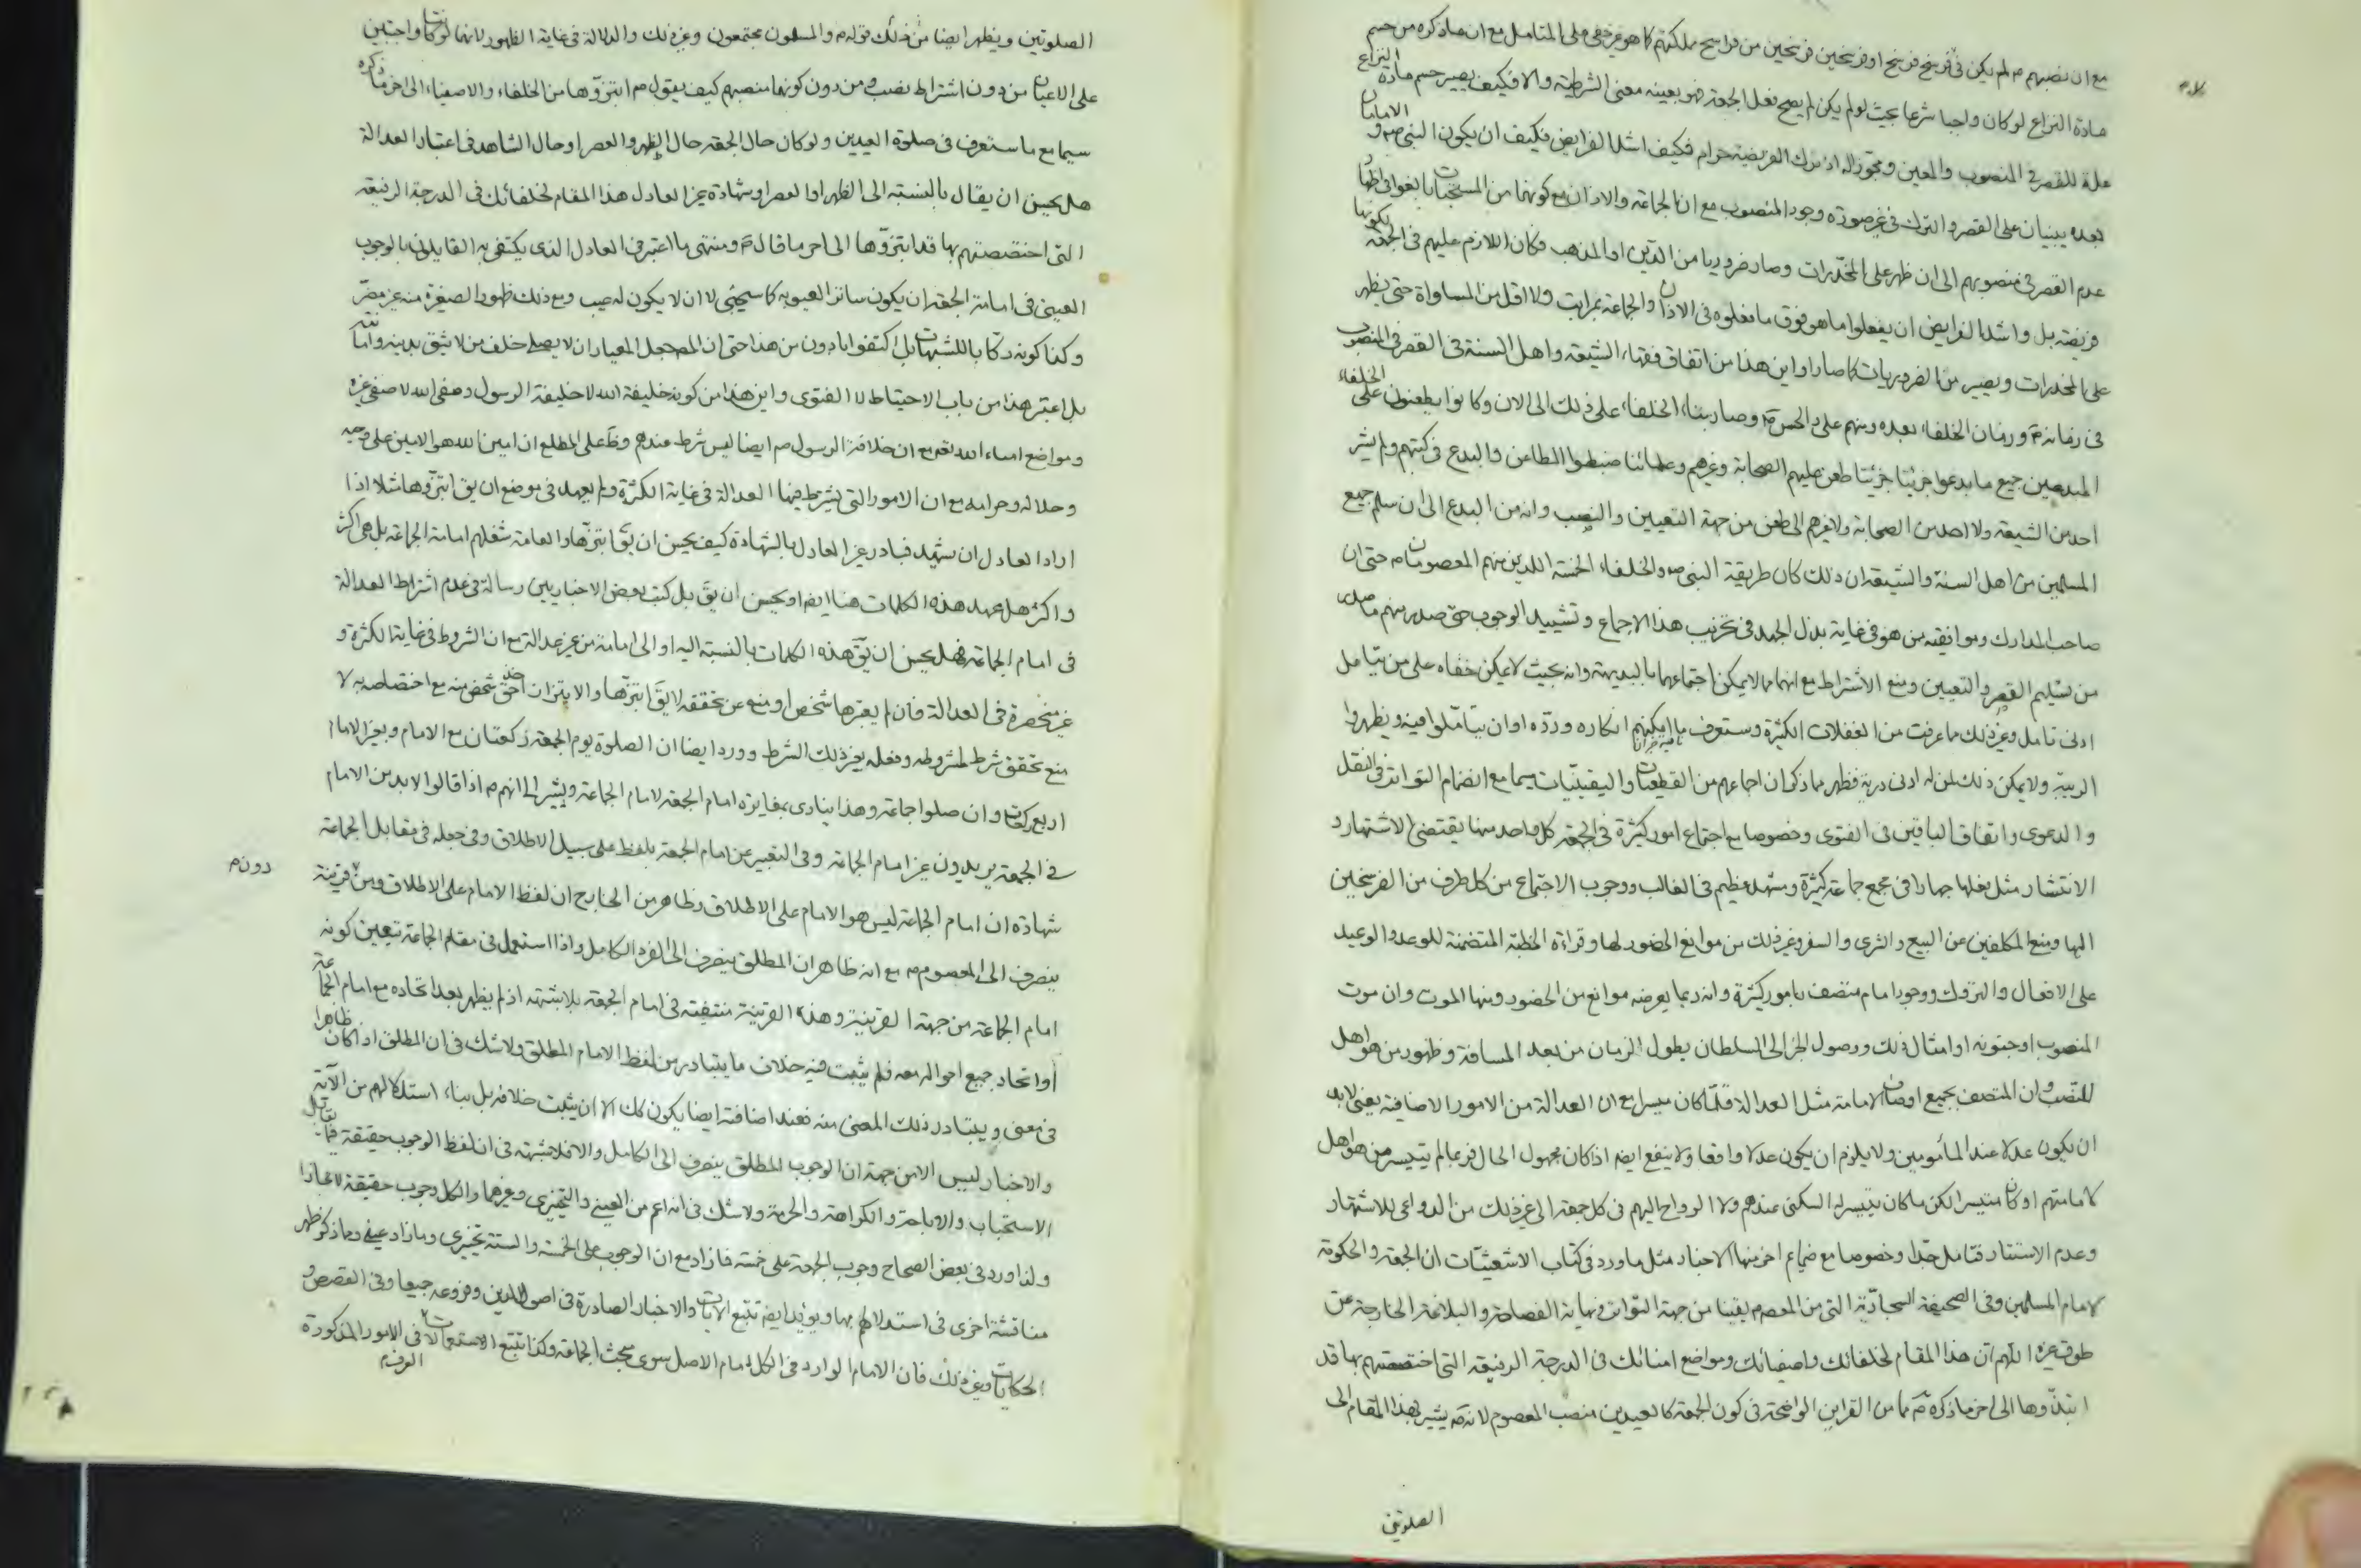 مع ان نصبهم م لم يكن فى فرسخ فرسخ او فرسخين فرسخين من فراسخ مملكتهم كما هو غير خفى على المتامل مع ان ماذكره من حسم
مادة النزاع لو كان واجبا شرعا بحيث لو لم يكن لم يصح فعل الجمعة فهو بعينه معنى الشرطية والا فكيف يصير حسم مادة النزاع
علة للقصر فى المنصوب والمعين ومجوزا له اذ ترك الفريضة حرام فكيف اشد الفرايض فكيف ان يكون النبى ص و الامامان
بعده يبنيان على القصر والترك فى غير صورة وجود المنصوب مع ان الجماعة والاذان مع كونهما من المستحبات بالغوا فى اظهار
عدم القصر فى منصوبهم الى ان ظهر على المخدرات وصار ضروريا من الدين او المذهب فكان اللازم عليهم فى الجمعة بكونها
فريضة بل واشد الفرايض ان يفعلوا ما هو فوق ما فعلوه فى الاذان والجماعة بمراتب ولا اقل من المساواة حتى يظهر
على المخدرات ويصير من الضروريات كما صارا واين هذا من اتفاق فقهاء الشيعة واهل السنة فى القصر فى المنصوب
فى زمانه ص وزمان الخلفاء بعده ومنهم على والحسن ع وصار بناء الخلفاء على ذلك الى الان وكانوا يطعنون على الخلفاء
المبدعين جميع ما بدعوا جزئيا جزئيا طعن عليهم الصحابة وغيرهم وعلمائنا ضبطوا المطاعن والبدع فى كتبهم ولم يشر
احد من الشيعة ولا احد من الصحابة ولا غيرهم الى طعن من جهة التعيين والنصب وانه من البدع الى ان سلم جميع
المسلمين من اهل السنة والشيعة ان ذلك كان طريقة النبى ص والخلفاء الخمسة اللذين منهم المعصومان م حتى ان
صاحب المدارك وموافقيه من هو فى غاية بذل الجهد فى تخريب هذا الاجماع وتشييد الوجوب حتى صدر منهم ما صدر
من تسليم القصر والتعيين ومنع الاشتراط مع انهما مما لا يمكن اجتماعهما بالبديهة وانه بحيث لا يمكن خفاه على من يتامل
ادنى تامل وغير ذلك ما عرفت من الغفلات الكثيرة وستعرف ما امكنهم انكاره وردّه او ان يتأمّلوا فيه ويظهروا
الريبة ولا يمكن ذلك لمن له ادنى دربة فظهر مما ذكر ان اجماعهم من القطعيات واليقينيّات سيما مع انضمام التواتر فى النقل
والدعوى واتفاق الباقين فى الفتوى وخصوصا مع اجتماع امور كثيرة فى الجمعة كل واحد منها يقتضى الاشتهار و
الانتشار مثل فعلها جهارا فى مجمع جماعة كثيرة ومشهد عظيم فى الغالب ووجوب الاجتماع من كل طرف من الفرسخين
اليها ومنع المكلفين عن البيع والشرى والسفر وغير ذلك من موانع الحضور لها وقراءة الخطبة المتضمنة للوعد والوعيد
على الافعال والتروك ووجود امام متصف بامور كثيرة وانه ربما يعرضه موانع من الحضور ومنها الموت وان موت
المنصوب او جنونه او امثال ذلك ووصول الخبر الى السلطان بطول الزمان من بعد المسافة وظهور من هو اهل
للنصب وان المتصف بجميع اوصاف الامامة مثل العدالة قلّما كان ميسرا مع ان العدالة من الامور الاضافية يعنى لابد
ان يكون عدلا عند المأمومين ولا يلزم ان يكون عدلا واقعا ولا ينفع ايضا اذا كان مجهول الحال فربما لم يتيسر من هو اهل
لامامتهم او كان متيسرا لكن ما كان يتيسر له السكنى عندهم ولا الرواح اليهم فى كل جمعة الى غير ذلك من الدواعى للاشتهار
وعدم الاستتار فتامل جدّا وخصوصا مع ضمايم اخر منها الاخبار مثل ما ورد فى كتاب الاشعثيّات ان الجمعة والحكومة
لامام المسلمين وفى الصحيفة السجاديّة التى من المعصوم يقينا من جهة التواتر ونهاية الفصاحة والبلاغة الخارجة عن
طوق غيره اللهم ان هذا المقام لخلفائك واصفيائك ومواضع امنائك فى الدرجة الرفيعة التى اختصصتهم بها قد
ابتذّوها الى اخر ما ذكره ع مما من القراين الواضحة فى كون الجمعة كالعيدين منصب المعصوم لانه ع يشير بهذا المقام الى
الصلوتين
الصلوتين ويظهر ايضا من ذلك قوله م والمسلمون مجتمعون وغير ذلك والدلالة فى غاية الظهور لانهما لو كانتا واجبتين
على الاعيان من دون اشتراط نصب ومن دون كونها منصبهم كيف يقول م ابتزّوها من الخلفاء والاصفياء الى اخر ما ذكره
سيما مع ما ستعرف فى صلوة العيدين ولو كان حال الجمعة حال الظهر والعصر او حال الشاهد فى اعتبار العدالة
هل يحسن ان يقال بالنسبة الى الظهر او العصر او شهادة غير العادل هذا المقام لخلفائك فى الدرجة الرفيعة
التى اختصصتهم بها قد ابتزّوها الى اخر ما قال ع ومنتهى ما اعتبر فى العادل الذى يكتفى به القايلون بالوجوب
العينى فى امامة الجمعة ان يكون ساتر العيوبه كما سيجئى لا ان لا يكون له عيب ومع ذلك ظهور الصغيرة منه غير مضرّ
وكذا كونه مرتكبا للشبهات بل اكتفوا بادون من هذا حتى ان المص جعل المعيار ان لا يصلى خلف من لا يثق بدينه وامانته
بل اعتبر هذا من باب الاحتياط لا الفتوى واين هذا من كونه خليفة الله لا خليفة الرسول وصفى الله لا صفى غيره
ومواضع امناء الله تعم مع ان خلافة الرسول م ايضا ليس شرط عندهم وظ على المطلع ان امين الله هو الامين على وحيه
وحلاله وحرامه مع ان الامور التى يشترط فيها العدالة فى غاية الكثرة ولم يعهد فى موضع ان يق ابتزّوها مثلا اذا
اراد العادل ان يشهد فبادر غير العادل بالشهادة كيف يحسن ان يق ابتزّها والعامة شغلهم امامة الجماعة بل هى اكثر
واكثر هل عهد هذه الكلمات هنا ايضا او يحسن ان يق بل كتب بعض الاخباريين رسالة فى عدم اشتراط العدالة
فى امام الجماعة فهل يحسن ان يق هذه الكلمات بالنسبة اليه او الى امامة من غير عدالة مع ان الشروط فى غاية الكثرة و
غير منحصرة فى العدالة فان لم يعتبرها شخص او منع عن تحققه لا يق ابتزّها والابتزاز اخذ حق شخص منه مع اختصاصه به لا
منع تحقق شرط لمشروطه وفعله بغير ذلك الشرط وورد ايضا ان الصلوة يوم الجمعة ركعتان مع الامام وبغير الامام
اربع ركعات وان صلوا جماعة وهذا ينادى بمغايرة امام الجمعة لامام الجماعة ويشير الى انهم م اذا قالوا لابد من الامام
فى الجمعة يريدون غير امام الجماعة وفى التعبير عن امام الجمعة بلفظ على سبيل الاطلاق وفى جعله فى مقابل الجماعة
شهادة ان امام الجماعة ليس هو الامام على الاطلاق وظاهر من الخارج ان لفظ الامام على الاطلاق ومن قرينة
دون م
ينصرف الى المعصوم م مع انه ظاهر ان المطلق ينصرف الى الفرد الكامل واذا استعمل فى مقام الجماعة يتعين كونه
امام الجماعة من جهة القرينة وهذه القرينة منتفية فى امام الجمعة بلا شبهة اذ لم يظهر بعد اتحاده مع امام الجماعة
او اتحاد جميع احواله معه فلم يثبت فيه خلاف ما يتبادر من لفظ الامام المطلق ولا شك فى ان المطلق اذا كان ظاهرا
فى معنى ويتبادر ذلك المعنى منه فعند اضافته ايضا يكون كك الا ان يثبت خلافه بل بناء استدلالهم من الآية
والاخبار ليس الا من جهة ان الوجوب المطلق ينصرف الى الكامل والا فلا شبهة فى ان لفظ الوجوب حقيقة فيما يقابل
الاستحباب والاباحة والكراهة والحرمة ولا شك فى انه اعم من العينى والتخييرى وغيرهما والكل وجوب حقيقة لا مجازا
ولذا ورد فى بعض الصحاح وجوب الجمعة على خمسة فما زاد مع ان الوجوب على الخمسة والستة تخييرى وما زاد عينى ومما ذكر ظهر
مناقشة اخرى فى استدلالهم بها ويؤيد ايضا تتبع الايات والاخبار الصادرة فى اصول الدين وفروعه جميعا وفى القصص و
الحكايات وغير ذلك فان الامام الوارد فى الكل امام الاصل سوى مبحث الجماعة وكذا تتبع الاستعمالات فى الامور المذكورة